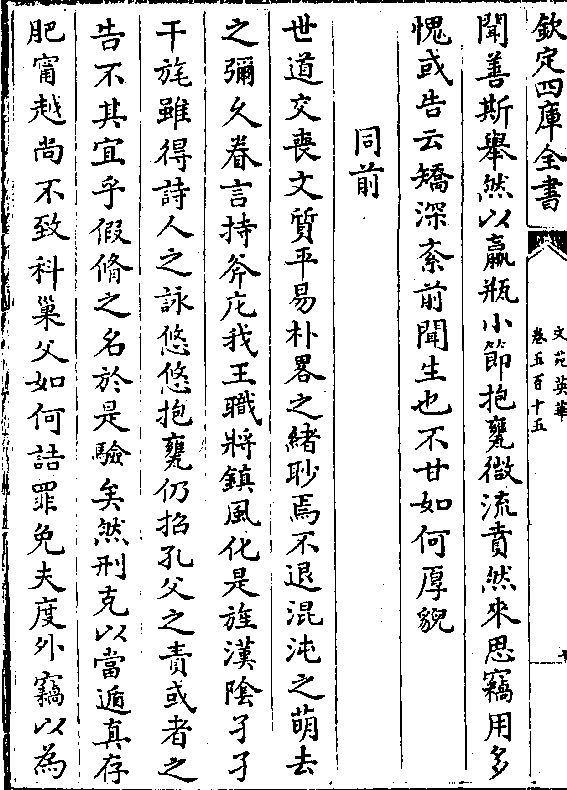 欽定四庫全書
文苑英華
卷五百十五
聞善斯舉然以羸瓶小節抱甕微流賁然來思竊用多
愧或告云矯深紊前聞生也不甘如何厚貌
同前
世道交喪文質平易朴畧之緒眇焉不退混沌之萌去
之彌久眷言持斧庀我王職將鎮風化是旌漢陰孑孑
干旄雖得詩人之詠悠悠抱甕仍招孔父之責或者之
告不其宜乎假脩之名於是驗矣然刑克以當遁真存
肥甯越尚不致科巢父如何詰罪免夫度外竊以為